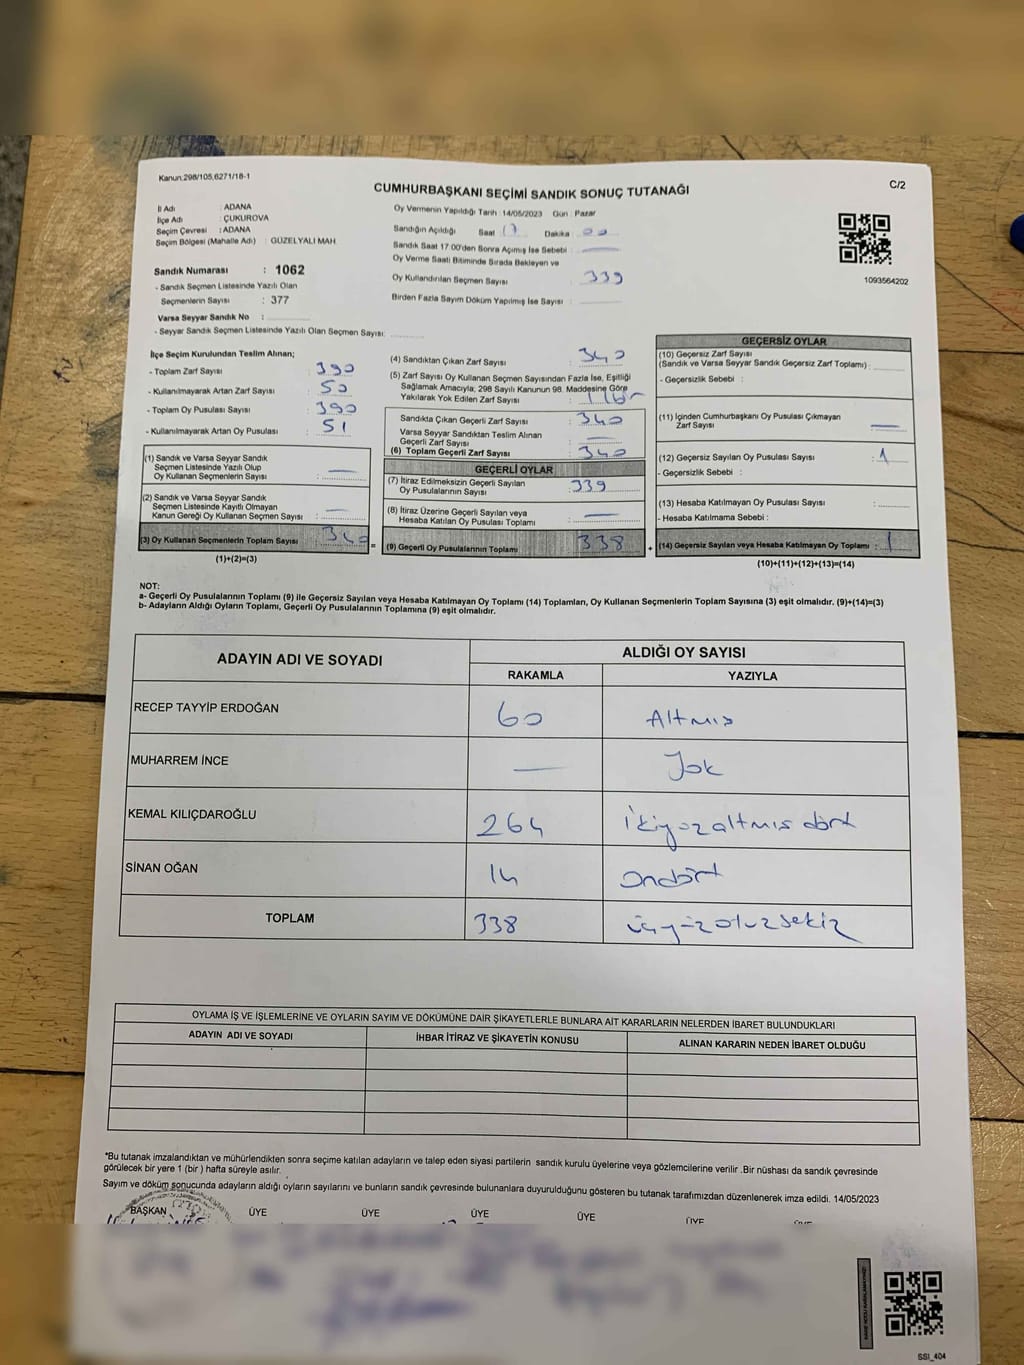 Kanun:298/105,6271/18-1
CUMHURBAŞKANI SEÇİMİ SANDIK SONUÇ TUTANAĞI
C/2
İl Adı : ADANA
İlçe Adı : ÇUKUROVA
Seçim Çevresi : ADANA
Seçim Bölgesi (Mahalle Adı) : GÜZELYALI MAH.
Sandık Numarası : 1062
- Sandık Seçmen Listesinde Yazılı Olan
Seçmenlerin Sayısı : 377
Varsa Seyyar Sandık No :
- Seyyar Sandık Seçmen Listesinde Yazılı Olan Seçmen Sayısı:
Oy Vermenin Yapıldığı Tarih : 14/05/2023 Gün : Pazar
Sandığın Açıldığı Saat 17 Dakika 00
Sandık Saat 17:00'den Sonra Açımış İse Sebebi :
Oy Verme Saati Bitiminde Sırada Bekleyen ve
Oy Kullandırılan Seçmen Sayısı 339
Birden Fazla Sayım Döküm Yapılmış İse Sayısı :
1093564202
İlçe Seçim Kurulundan Teslim Alınan;
- Toplam Zarf Sayısı : 390
- Kullanılmayarak Artan Zarf Sayısı : 50
- Toplam Oy Pusulası Sayısı : 390
- Kullanılmayarak Artan Oy Pusulası : 51
(1) Sandık ve Varsa Seyyar Sandık
Seçmen Listesinde Yazılı Olup
Oy Kullanan Seçmenlerin Sayısı : —
(2) Sandık ve Varsa Seyyar Sandık
Seçmen Listesinde Kayıtlı Olmayan
Kanun Gereği Oy Kullanan Seçmen Sayısı : —
(3) Oy Kullanan Seçmenlerin Toplam Sayısı : 340
(1)+(2)=(3)
=
(4) Sandıktan Çıkan Zarf Sayısı : 340
(5) Zarf Sayısı Oy Kullanan Seçmen Sayısından Fazla İse, Eşitliği
Sağlamak Amacıyla; 298 Sayılı Kanunun 98. Maddesine Göre
Yakılarak Yok Edilen Zarf Sayısı :
Sandıkta Çıkan Geçerli Zarf Sayısı : 340
Varsa Seyyar Sandıktan Teslim Alınan
Geçerli Zarf Sayısı : —
(6) Toplam Geçerli Zarf Sayısı : 340
GEÇERLİ OYLAR
(7) İtiraz Edilmeksizin Geçerli Sayılan
Oy Pusulalarının Sayısı : 339
(8) İtiraz Üzerine Geçerli Sayılan veya
Hesaba Katılan Oy Pusulası Toplamı : —
(9) Geçerli Oy Pusulalarının Toplamı : 338
+
GEÇERSİZ OYLAR
(10) Geçersiz Zarf Sayısı
(Sandık ve Varsa Seyyar Sandık Geçersiz Zarf Toplamı) :
- Geçersizlik Sebebi :
(11) İçinden Cumhurbaşkanı Oy Pusulası Çıkmayan
Zarf Sayısı : —
(12) Geçersiz Sayılan Oy Pusulası Sayısı : 1
- Geçersizlik Sebebi :
(13) Hesaba Katılmayan Oy Pusulası Sayısı :
- Hesaba Katılmama Sebebi :
(14) Geçersiz Sayılan veya Hesaba Katılmayan Oy Toplamı : 1
(10)+(11)+(12)+(13)=(14)
NOT:
a- Geçerli Oy Pusulalarının Toplamı (9) ile Geçersiz Sayılan veya Hesaba Katılmayan Oy Toplamı (14) Toplamları, Oy Kullanan Seçmenlerin Toplam Sayısına (3) eşit olmalıdır. (9)+(14)=(3)
b- Adayların Aldığı Oyların Toplamı, Geçerli Oy Pusulalarının Toplamına (9) eşit olmalıdır.
ADAYIN ADI VE SOYADI
ALDIĞI OY SAYISI
RAKAMLA YAZIYLA
RECEP TAYYİP ERDOĞAN 60 Altmış
MUHARREM İNCE — Yok
KEMAL KILIÇDAROĞLU 264 İkiyüzaltmış dört
SİNAN OĞAN 14 Ondört
TOPLAM 338 üçyüzotuzsekiz
OYLAMA İŞ VE İŞLEMLERİNE VE OYLARIN SAYIM VE DÖKÜMÜNE DAİR ŞİKAYETLERLE BUNLARA AİT KARARLARIN NELERDEN İBARET BULUNDUKLARI
ADAYIN ADI VE SOYADI İHBAR İTİRAZ VE ŞİKAYETİN KONUSU ALINAN KARARIN NEDEN İBARET OLDUĞU
*Bu tutanak imzalandıktan ve mühürlendikten sonra seçime katılan adayların ve talep eden siyasi partilerin sandık kurulu üyelerine veya gözlemcilerine verilir .Bir nüshası da sandık çevresinde
görülecek bir yere 1 (bir ) hafta süreyle asılır.
Sayım ve döküm sonucunda adayların aldığı oyların sayılarını ve bunların sandık çevresinde bulunanlara duyurulduğunu gösteren bu tutanak tarafımızdan düzenlenerek imza edildi. 14/05/2023
BAŞKAN ÜYE ÜYE ÜYE ÜYE ÜYE
SSI_404